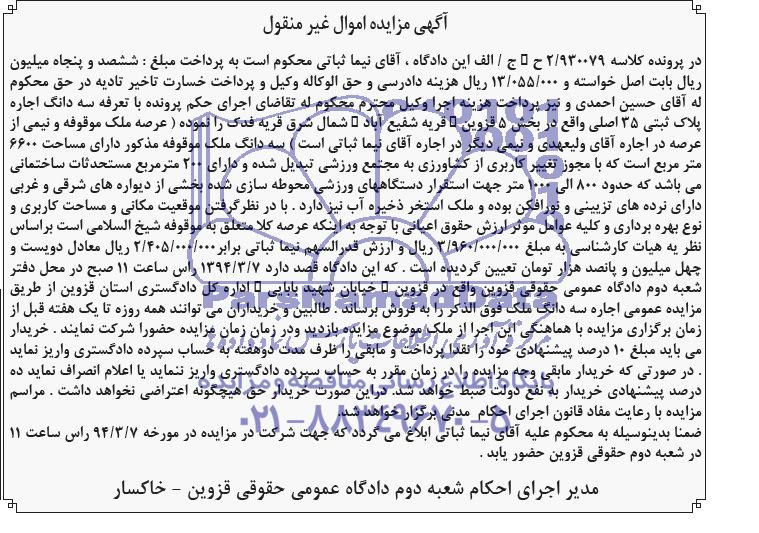 آگهی مزایده اموال غیر منقول
در پرونده کلاسه ۲/۹۳۰۰۷۹ ح □ ج / الف این دادگاه ، آقای نیما ثباتی محکوم است به پرداخت مبلغ : ششصد و پنجاه میلیون
ریال بابت اصل خواسته و ۱۳/۰۵۵/۰۰۰ ریال هزینه دادرسی و حق الوکاله وکیل و پرداخت خسارت تاخیر تادیه در حق محکوم
له آقای حسین احمدی و نیز پرداخت هزینه اجرا وکیل محترم محکوم له تقاضای اجرای حکم پرونده با تعرفه سه دانگ اجاره
پلاک ثبتی ۳۵ اصلی واقع در بخش ۵ قزوین □ قریه شفیع آباد □ شمال شرق قریه فدک را نموده ( عرصه ملک موقوفه و نیمی از
عرصه در اجاره آقای ولیعهدی و نیمی دیگر در اجاره آقای نیما ثباتی است ) سه دانگ ملک موقوفه مذکور دارای مساحت ۶۶۰۰
متر مربع است که با مجوز تغییر کاربری از کشاورزی به مجتمع ورزشی تبدیل شده و دارای ۲۰۰ مترمربع مستحدثات ساختمانی
می باشد که حدود ۸۰۰ الی ۱۰۰۰ متر جهت استقرار دستگاههای ورزشی محوطه سازی شده بخشی از دیواره های شرقی و غربی
دارای نرده های تزیینی و نورافکن بوده و ملک استخر ذخیره آب نیز دارد . با در نظر گرفتن موقعیت مکانی و مساحت کاربری و
نوع بهره برداری و کلیه عوامل موثر ارزش حقوق اعیانی با توجه به اینکه عرصه کلا متعلق به موقوفه شیخ السلامی است براساس
نظر یه هیات کارشناسی به مبلغ ۳/۹۶۰/۰۰۰/۰۰۰ ریال و ارزش قدرالسهم نیما ثباتی برابر ۲/۴۰۵/۰۰۰/۰۰۰ ریال معادل دویست و
چهل میلیون و پانصد هزار تومان تعیین گردیده است . که این دادگاه قصد دارد ۱۳۹۴/۳/۷ راس ساعت ۱۱ صبح در محل دفتر
شعبه دوم دادگاه عمومی حقوقی قزوین واقع در قزوین □ خیابان شهید بابایی □ اداره کل دادگستری استان قزوین از طریق
مزایده عمومی اجاره سه دانگ ملک فوق الذکر را به فروش برساند . طالبین و خریداران می توانند همه روزه تا یک هفته قبل از
زمان برگزاری مزایده با هماهنگی این اجرا از ملک موضوع مزایده بازدید ودر زمان زمان مزایده حضورا شرکت نمایند . خریدار
می باید مبلغ ۱۰ درصد پیشنهادی خود را نقدا پرداخت و مابقی را ظرف مدت دوهفته به حساب سپرده دادگستری واریز نماید
. در صورتی که خریدار مابقی وجه مزایده را در زمان مقرر به حساب سپرده دادگستری واریز ننماید یا اعلام انصراف نماید ده
درصد پیشنهادی خریدار به نفع دولت ضبط خواهد شد. دراین صورت خریدار حق هیچگونه اعتراضی نخواهد داشت . مراسم
مزایده با رعایت مفاد قانون اجرای احکام مدنی برگزار خواهد شد.
ضمنا بدینوسیله به محکوم علیه آقای نیما ثباتی ابلاغ می گردد که جهت شرکت در مزایده در مورخه ۹۴/۳/۷ راس ساعت ۱۱
در شعبه دوم حقوقی قزوین حضور یابد .
مدیر اجرای احکام شعبه دوم دادگاه عمومی حقوقی قزوین - خاکسار
ParsNamadData
پایگاه اطلاع رسانی مناقصه و مزایده
۰۲۱-۸۸۳۴۹۶۷۰-۵